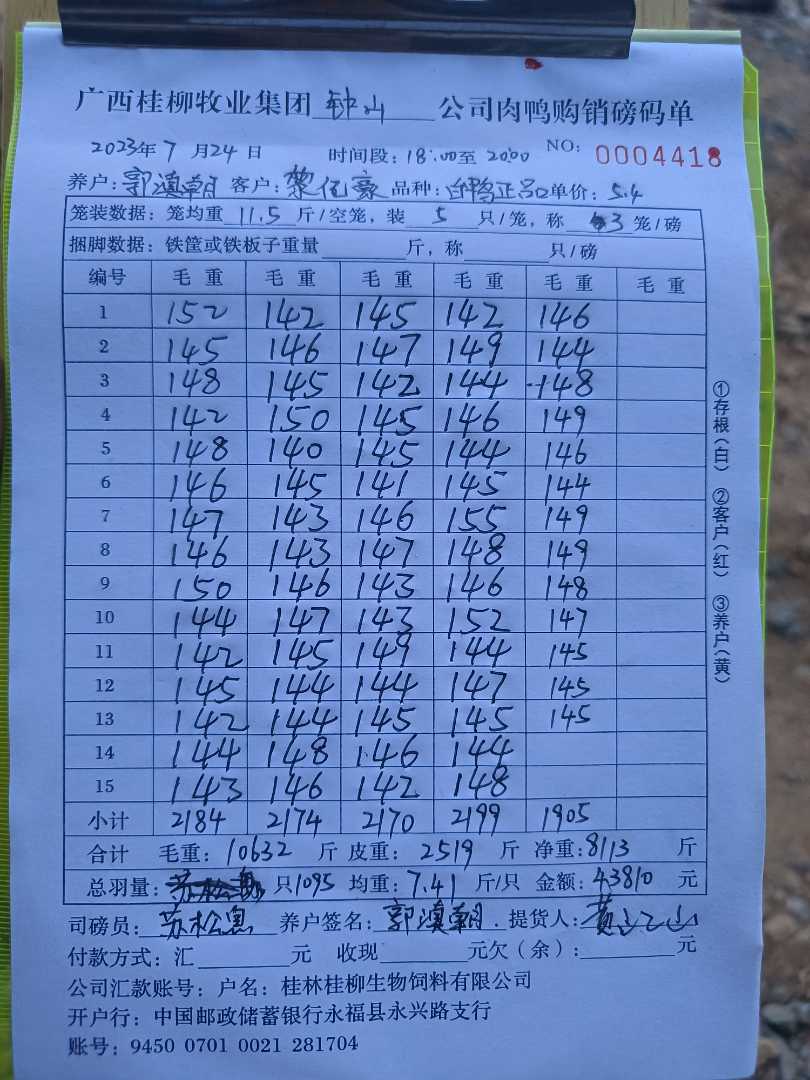 广西桂柳牧业集团 钟山 公司肉鸭购销磅码单
2023年 7 月 24 日 时间段: 18:00至 20:00 NO: 0004418
养户: 郭滇朝 客户: 黎亿豪 品种: 白鸭正品 单价: 5.4
笼装数据: 笼均重 11.5 斤/空笼, 装 5 只/笼, 称 3 笼/磅
捆脚数据: 铁筐或铁板子重量 斤, 称 只/磅
编号 毛 重 毛 重 毛 重 毛 重 毛 重 毛 重
1 152 142 145 142 146
2 145 146 147 149 144
3 148 145 142 144 148
4 142 150 145 146 149
5 148 140 145 144 146
6 146 145 141 145 144
7 147 143 146 155 149
8 146 143 147 148 149
9 150 146 143 146 148
10 144 147 143 152 147
11 142 145 149 144 145
12 145 144 144 147 145
13 142 144 145 145 145
14 144 148 146 144
15 143 146 142 148
小计 2184 2174 2170 2199 1905
合计 毛重: 10632 斤 皮重: 2519 斤 净重: 8113 斤
总羽量: 只1095 均重: 7.41 斤/只 金额: 43810 元
司磅员: 苏松 养户签名: 郭滇朝 提货人: 黄
付款方式: 汇 元 收现 元欠(余): 元
公司汇款账号: 户名: 桂林桂柳生物饲料有限公司
开户行: 中国邮政储蓄银行永福县永兴路支行
账号: 9450 0701 0021 281704
①存根(白) ②客户(红) ③养户(黄)